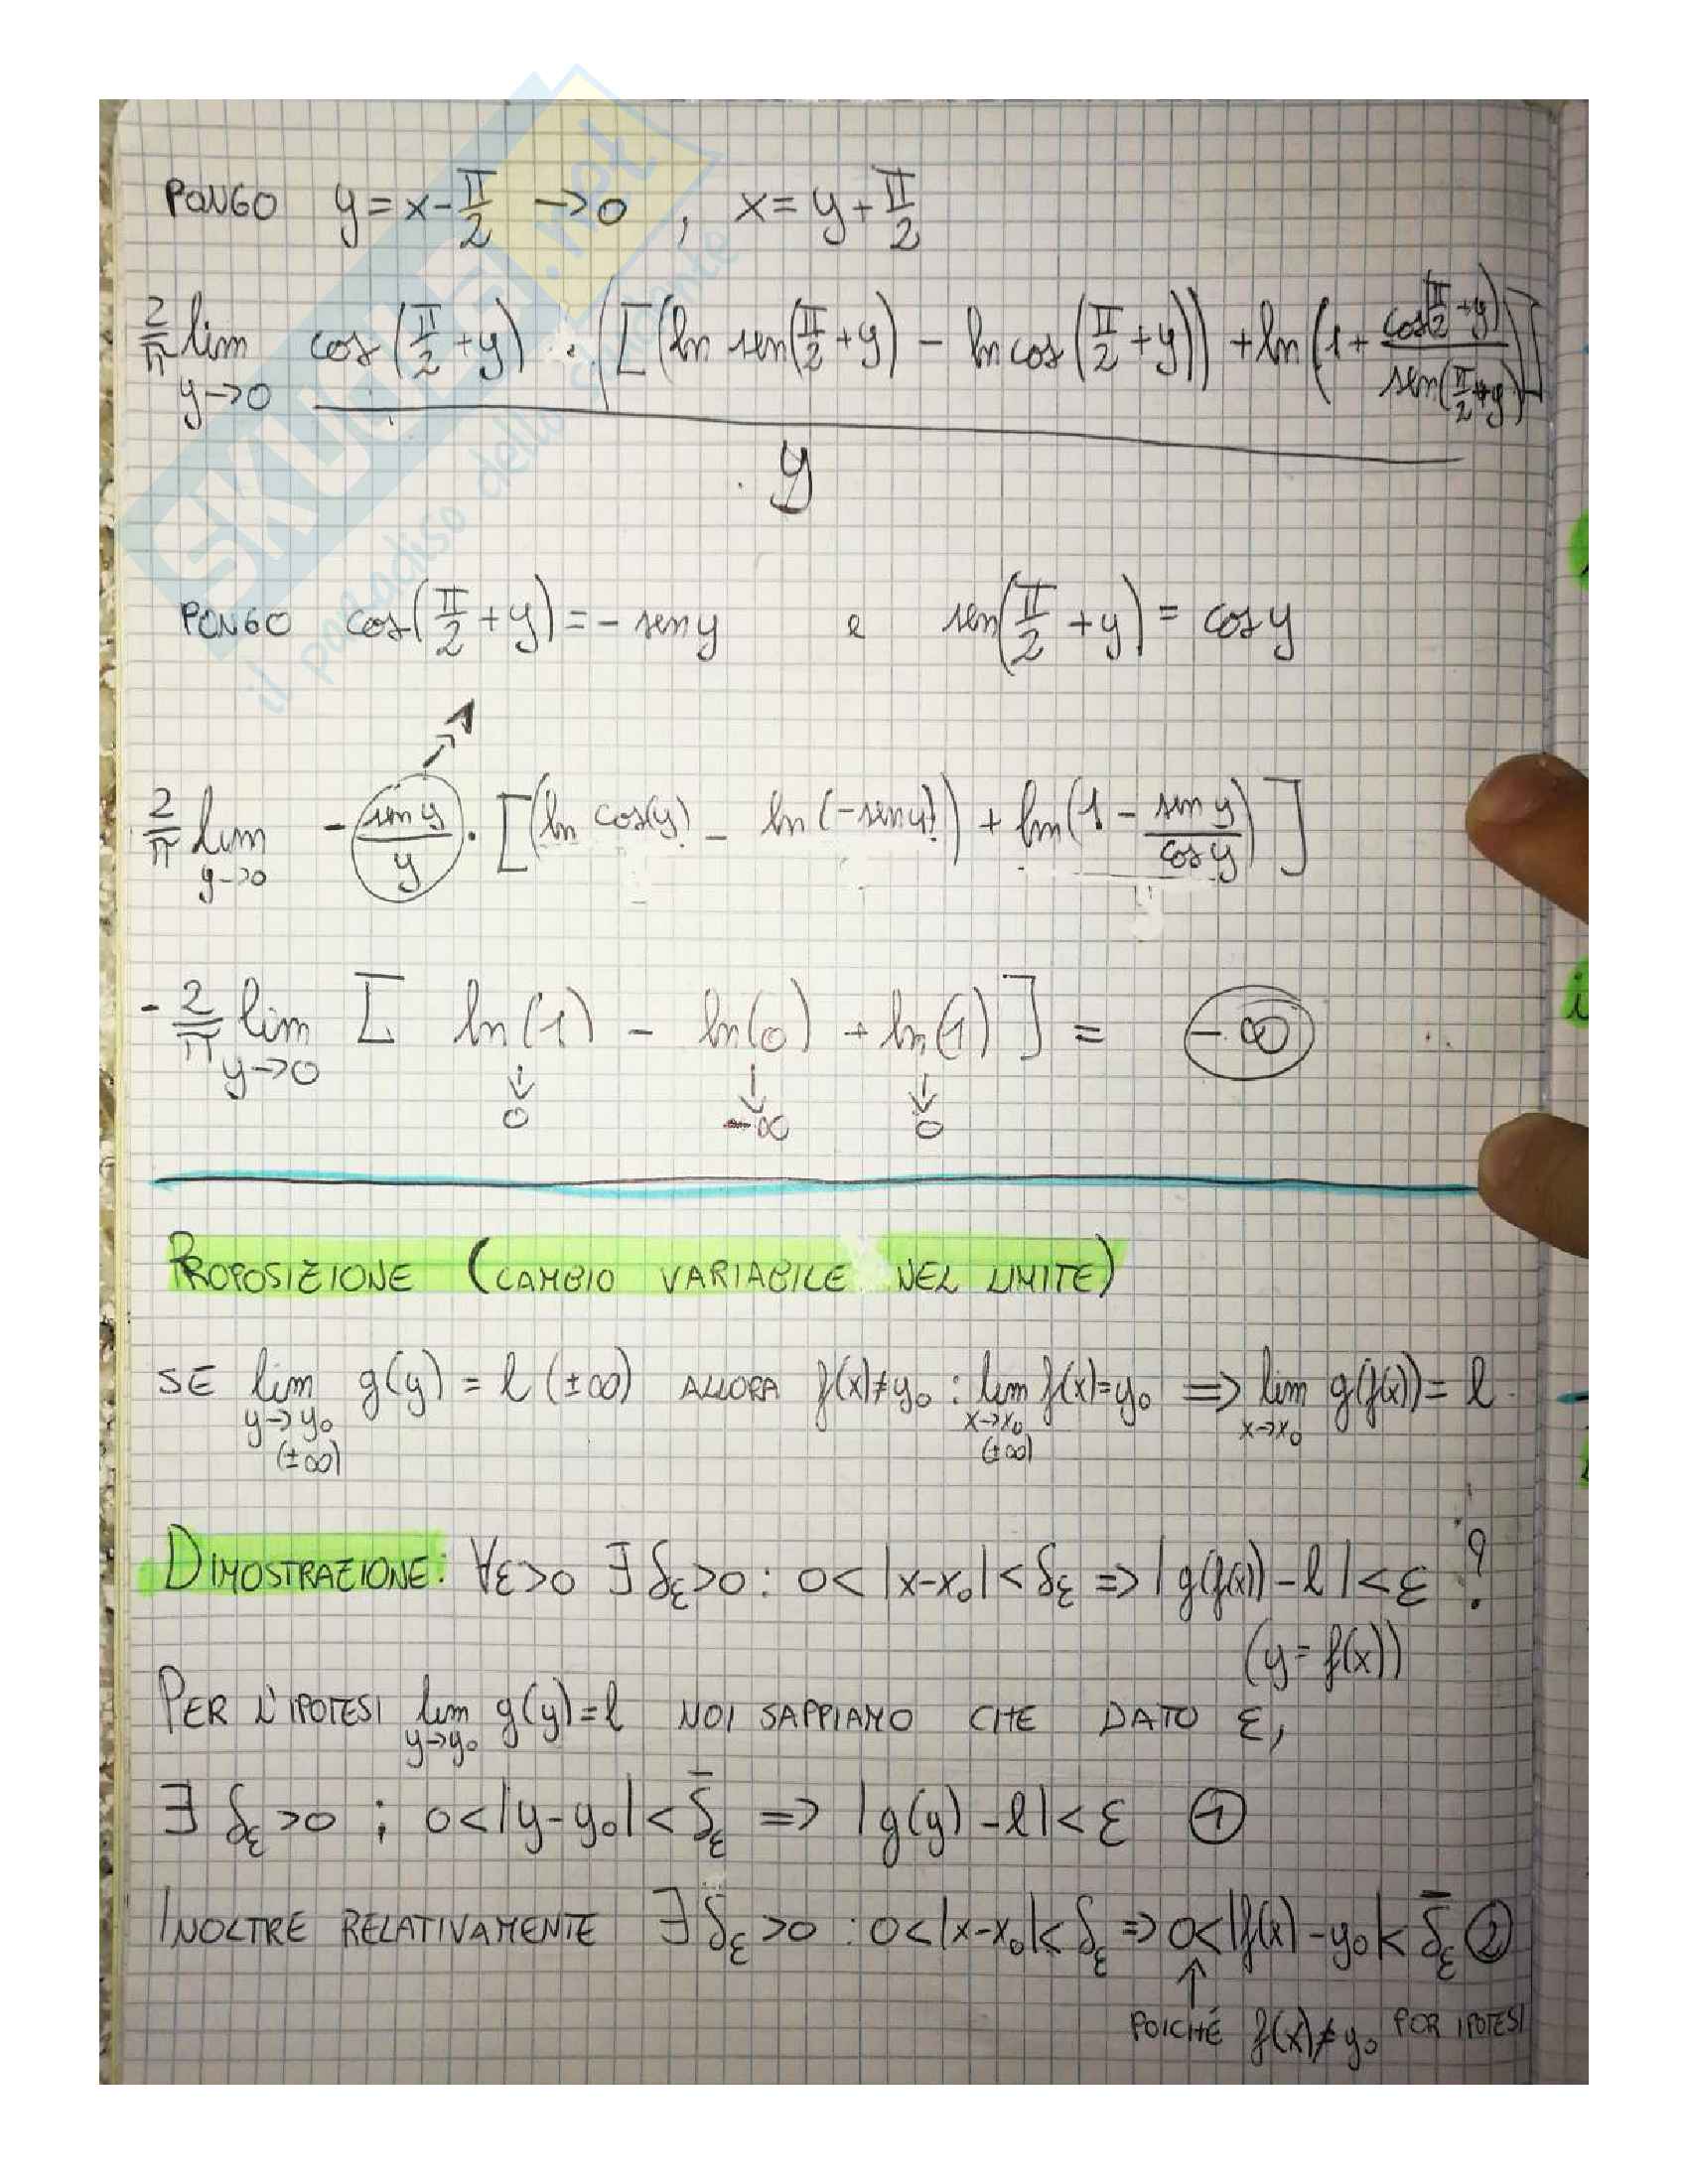 SKUOLA.net
il paradiso dello studente
PONGO y = x - π/2 → 0 , x = y + π/2
2/π lim y→0 cos(π/2 + y) · ([(ln sen(π/2 + y) - ln cos(π/2 + y)) + ln(1 + cos(π/2 + y)/sen(π/2 + y))]
y
PONGO cos(π/2 + y) = - sen y e sen(π/2 + y) = cos y
2/π lim y→0 - (sen y / y) · [(ln cos(y) - ln(-sen y)) + ln(1 - sen y / cos y)]
- 2/π lim y→0 [ ln(1) - ln(0) + ln(1) ] = -∞
↓ 0 ↓ -∞ ↓ 0
PROPOSIZIONE (CAMBIO VARIABILE NEL LIMITE)
SE lim y→y₀ (±∞) g(y) = l (±∞) ALLORA f(x)≠y₀ : lim x→x₀ (±∞) f(x)=y₀ => lim x→x₀ g(f(x)) = l
DIMOSTRAZIONE: ∀ε>0 ∃ δε>0 : 0<|x-x₀|<δε => |g(f(x))-l|<ε ?
(y = f(x))
PER L'IPOTESI lim y→y₀ g(y)=l NOI SAPPIAMO CHE DATO ε,
∃ δε>0 ; 0<|y-y₀|<δ̄ε => |g(y)-l|<ε ①
INOLTRE RELATIVAMENTE ∃ δε>0 : 0<|x-x₀|<δε => 0<|f(x)-y₀|<δ̄ε ②
↑
POICHÉ f(x)≠y₀ POR IPOTESI